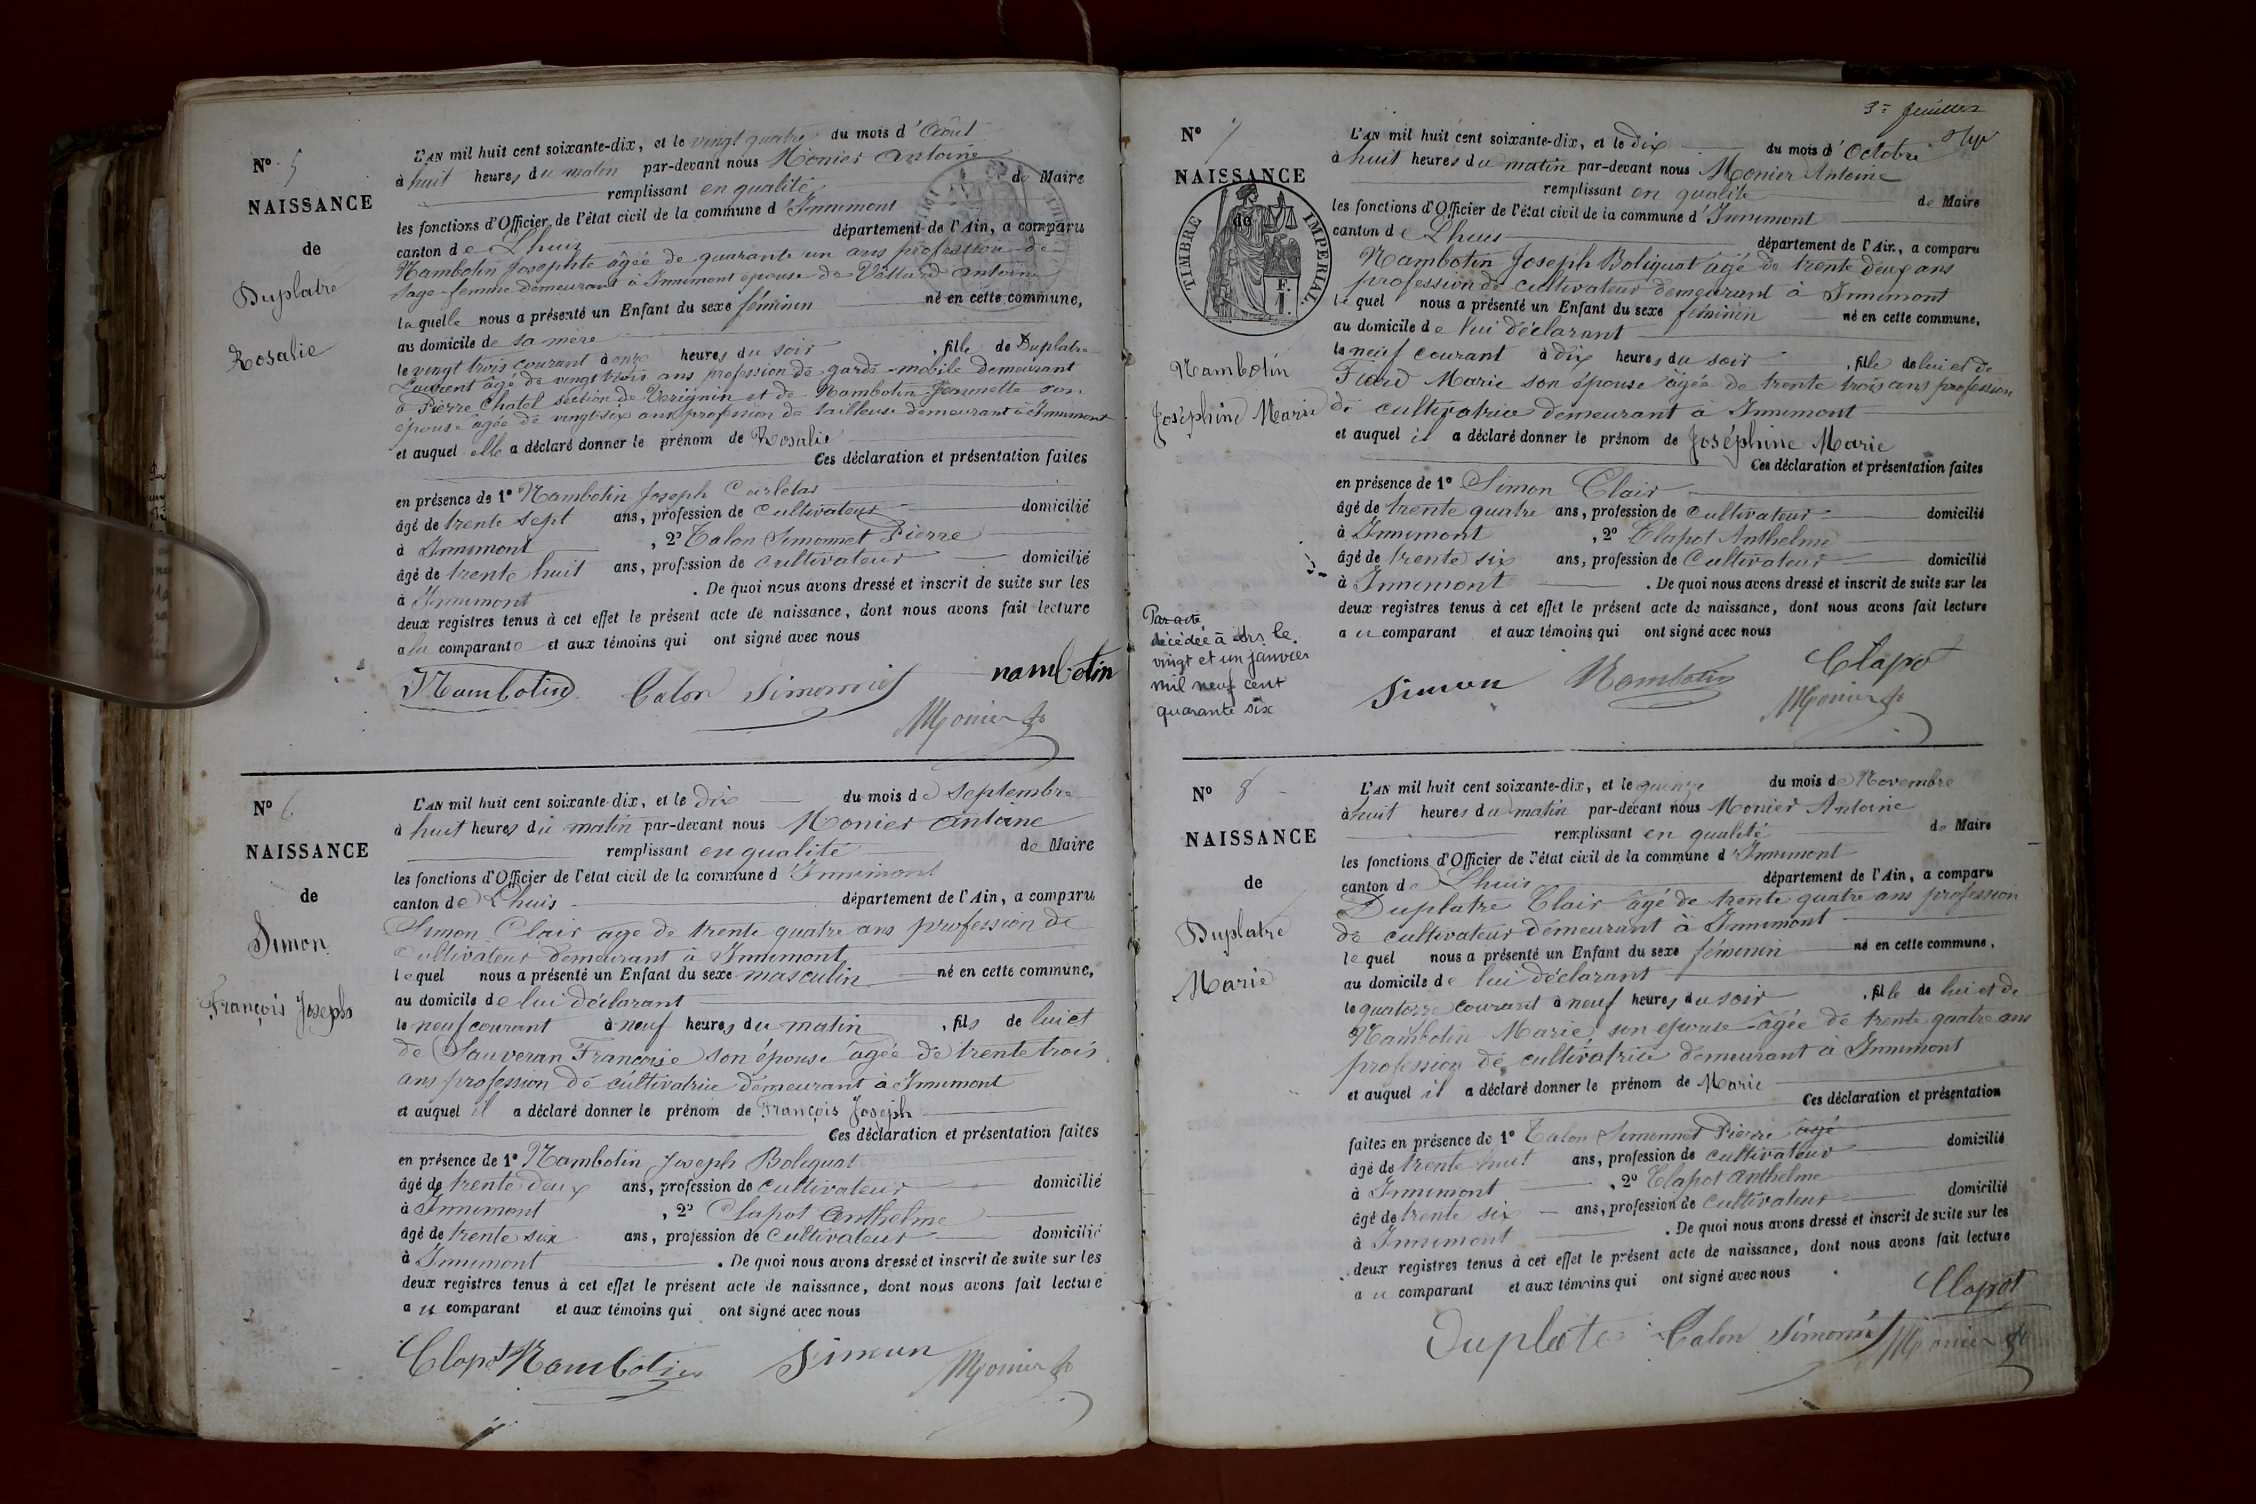 N° 5
NAISSANCE
de
Duplatre
Rosalie
L'AN mil huit cent soixante-dix, et le vingt quatre du mois d'Août
à huit heures du matin par-devant nous Monier Antoine
remplissant en qualité de Maire
les fonctions d'Officier de l'état civil de la commune d'Innimont
canton de Lhuis département de l'Ain, a comparu
Nambotin Josephte âgée de quarante un ans profession de
sage-femme demeurant à Innimont épouse de Vallard Antoine
laquelle nous a présenté un Enfant du sexe féminin né en cette commune,
au domicile de sa mère
le vingt trois courant à onze heures du soir, fille de Duplatre
Laurent âgé de vingt trois ans profession de garde-mobile demeurant
à Pierre Chatel section de Virignin et de Nambotin Jeannette son
épouse agée de vingt-six ans profession de tailleuse demeurant à Innimont
et auquel elle a déclaré donner le prénom de Rosalie
Ces déclaration et présentation faites
en présence de 1° Nambotin Joseph Carletas
âgé de trente sept ans, profession de cultivateur domicilié
à Innimont, 2° Talon Simonnet Pierre
âgé de trente huit ans, profession de cultivateur domicilié
à Innimont. De quoi nous avons dressé et inscrit de suite sur les
deux registres tenus à cet effet le présent acte de naissance, dont nous avons fait lecture
a la comparante et aux témoins qui ont signé avec nous
Nambotin Talon Simonnet nambotin
Monier
N° 6
NAISSANCE
de
Simon
François Joseph
L'AN mil huit cent soixante-dix, et le dix du mois de Septembre
à huit heures du matin par-devant nous Monier Antoine
remplissant en qualité de Maire
les fonctions d'Officier de l'état civil de la commune d'Innimont
canton de Lhuis département de l'Ain, a comparu
Simon Clair age de trente quatre ans profession de
cultivateur demeurant à Innimont
lequel nous a présenté un Enfant du sexe masculin né en cette commune,
au domicile de lui déclarant
le neuf courant à neuf heures du matin, fils de lui et
de Sauveran Françoise son épouse âgée de trente trois
ans profession de cultivatrice demeurant à Innimont
et auquel il a déclaré donner le prénom de François Joseph
Ces déclaration et présentation faites
en présence de 1° Nambotin Joseph Boliquat
âgé de trente deux ans, profession de cultivateur domicilié
à Innimont, 2° Clapot Anthelme
âgé de trente six ans, profession de cultivateur domicilié
à Innimont. De quoi nous avons dressé et inscrit de suite sur les
deux registres tenus à cet effet le présent acte de naissance, dont nous avons fait lecture
a u comparant et aux témoins qui ont signé avec nous
Clapot Nambotin Simon Monier
3e feuillet
N° 7
NAISSANCE
de
TIMBRE IMPERIAL
1 F.
Nambotin
Joséphine Marie
L'AN mil huit cent soixante-dix, et le dix du mois d'Octobre
à huit heures du matin par-devant nous Monier Antoine
remplissant en qualité de Maire
les fonctions d'Officier de l'état civil de la commune d'Innimont
canton de Lhuis département de l'Ain, a comparu
Nambotin Joseph Boliquat âgé de trente deux ans
profession de cultivateur demeurant à Innimont
lequel nous a présenté un Enfant du sexe féminin né en cette commune,
au domicile de lui déclarant
le neuf courant à dix heures du soir, fille de lui et de
Marie son épouse âgée de trente trois ans profession
de cultivatrice demeurant à Innimont
et auquel il a déclaré donner le prénom de Joséphine Marie
Ces déclaration et présentation faites
en présence de 1° Simon Clair
âgé de trente quatre ans, profession de cultivateur domicilié
à Innimont, 2° Clapot Anthelme
âgé de trente six ans, profession de cultivateur domicilié
à Innimont. De quoi nous avons dressé et inscrit de suite sur les
deux registres tenus à cet effet le présent acte de naissance, dont nous avons fait lecture
a u comparant et aux témoins qui ont signé avec nous
Par acte
décédée à le
vingt et un janvier
mil neuf cent
quarante six
Simon Nambotin Clapot
Monier
N° 8
NAISSANCE
de
Duplatre
Marie
L'AN mil huit cent soixante-dix, et le quinze du mois de Novembre
à huit heures du matin par-devant nous Monier Antoine
remplissant en qualité de Maire
les fonctions d'Officier de l'état civil de la commune d'Innimont
canton de Lhuis département de l'Ain, a comparu
Duplatre Clair âgé de trente quatre ans profession
de cultivateur demeurant à Innimont
lequel nous a présenté un Enfant du sexe féminin né en cette commune,
au domicile de lui déclarant
le quatorze courant à neuf heures du soir, fille de lui et de
Nambotin Marie son épouse âgée de trente quatre ans
profession de cultivatrice demeurant à Innimont
et auquel il a déclaré donner le prénom de Marie
Ces déclaration et présentation
faites en présence de 1° Talon Simonnet Pierre agé
âgé de trente huit ans, profession de cultivateur domicilié
à Innimont, 2° Clapot Anthelme
âgé de trente six ans, profession de cultivateur domicilié
à Innimont. De quoi nous avons dressé et inscrit de suite sur les
deux registres tenus à cet effet le présent acte de naissance, dont nous avons fait lecture
a u comparant et aux témoins qui ont signé avec nous
Clapot
Duplate Talon Simonnet Monier